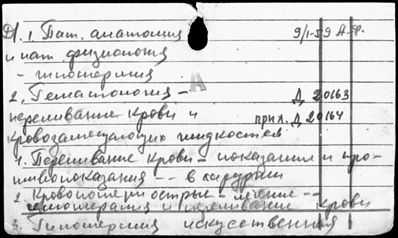 Д/. 1. Пат. анатомия 9/I-59 А.Ф.
и пат. физиология
- гипотермия
2. Гематология - Д 20163
переливание крови и прил. Д 20164
кровозамещающих жидкостей
1. Переливание крови - показания и про-
тивопоказания -- в хирургии
2. Кровопотери острые - лечение --
гипотермия и переливание крови
3. Гипотермия искусственная